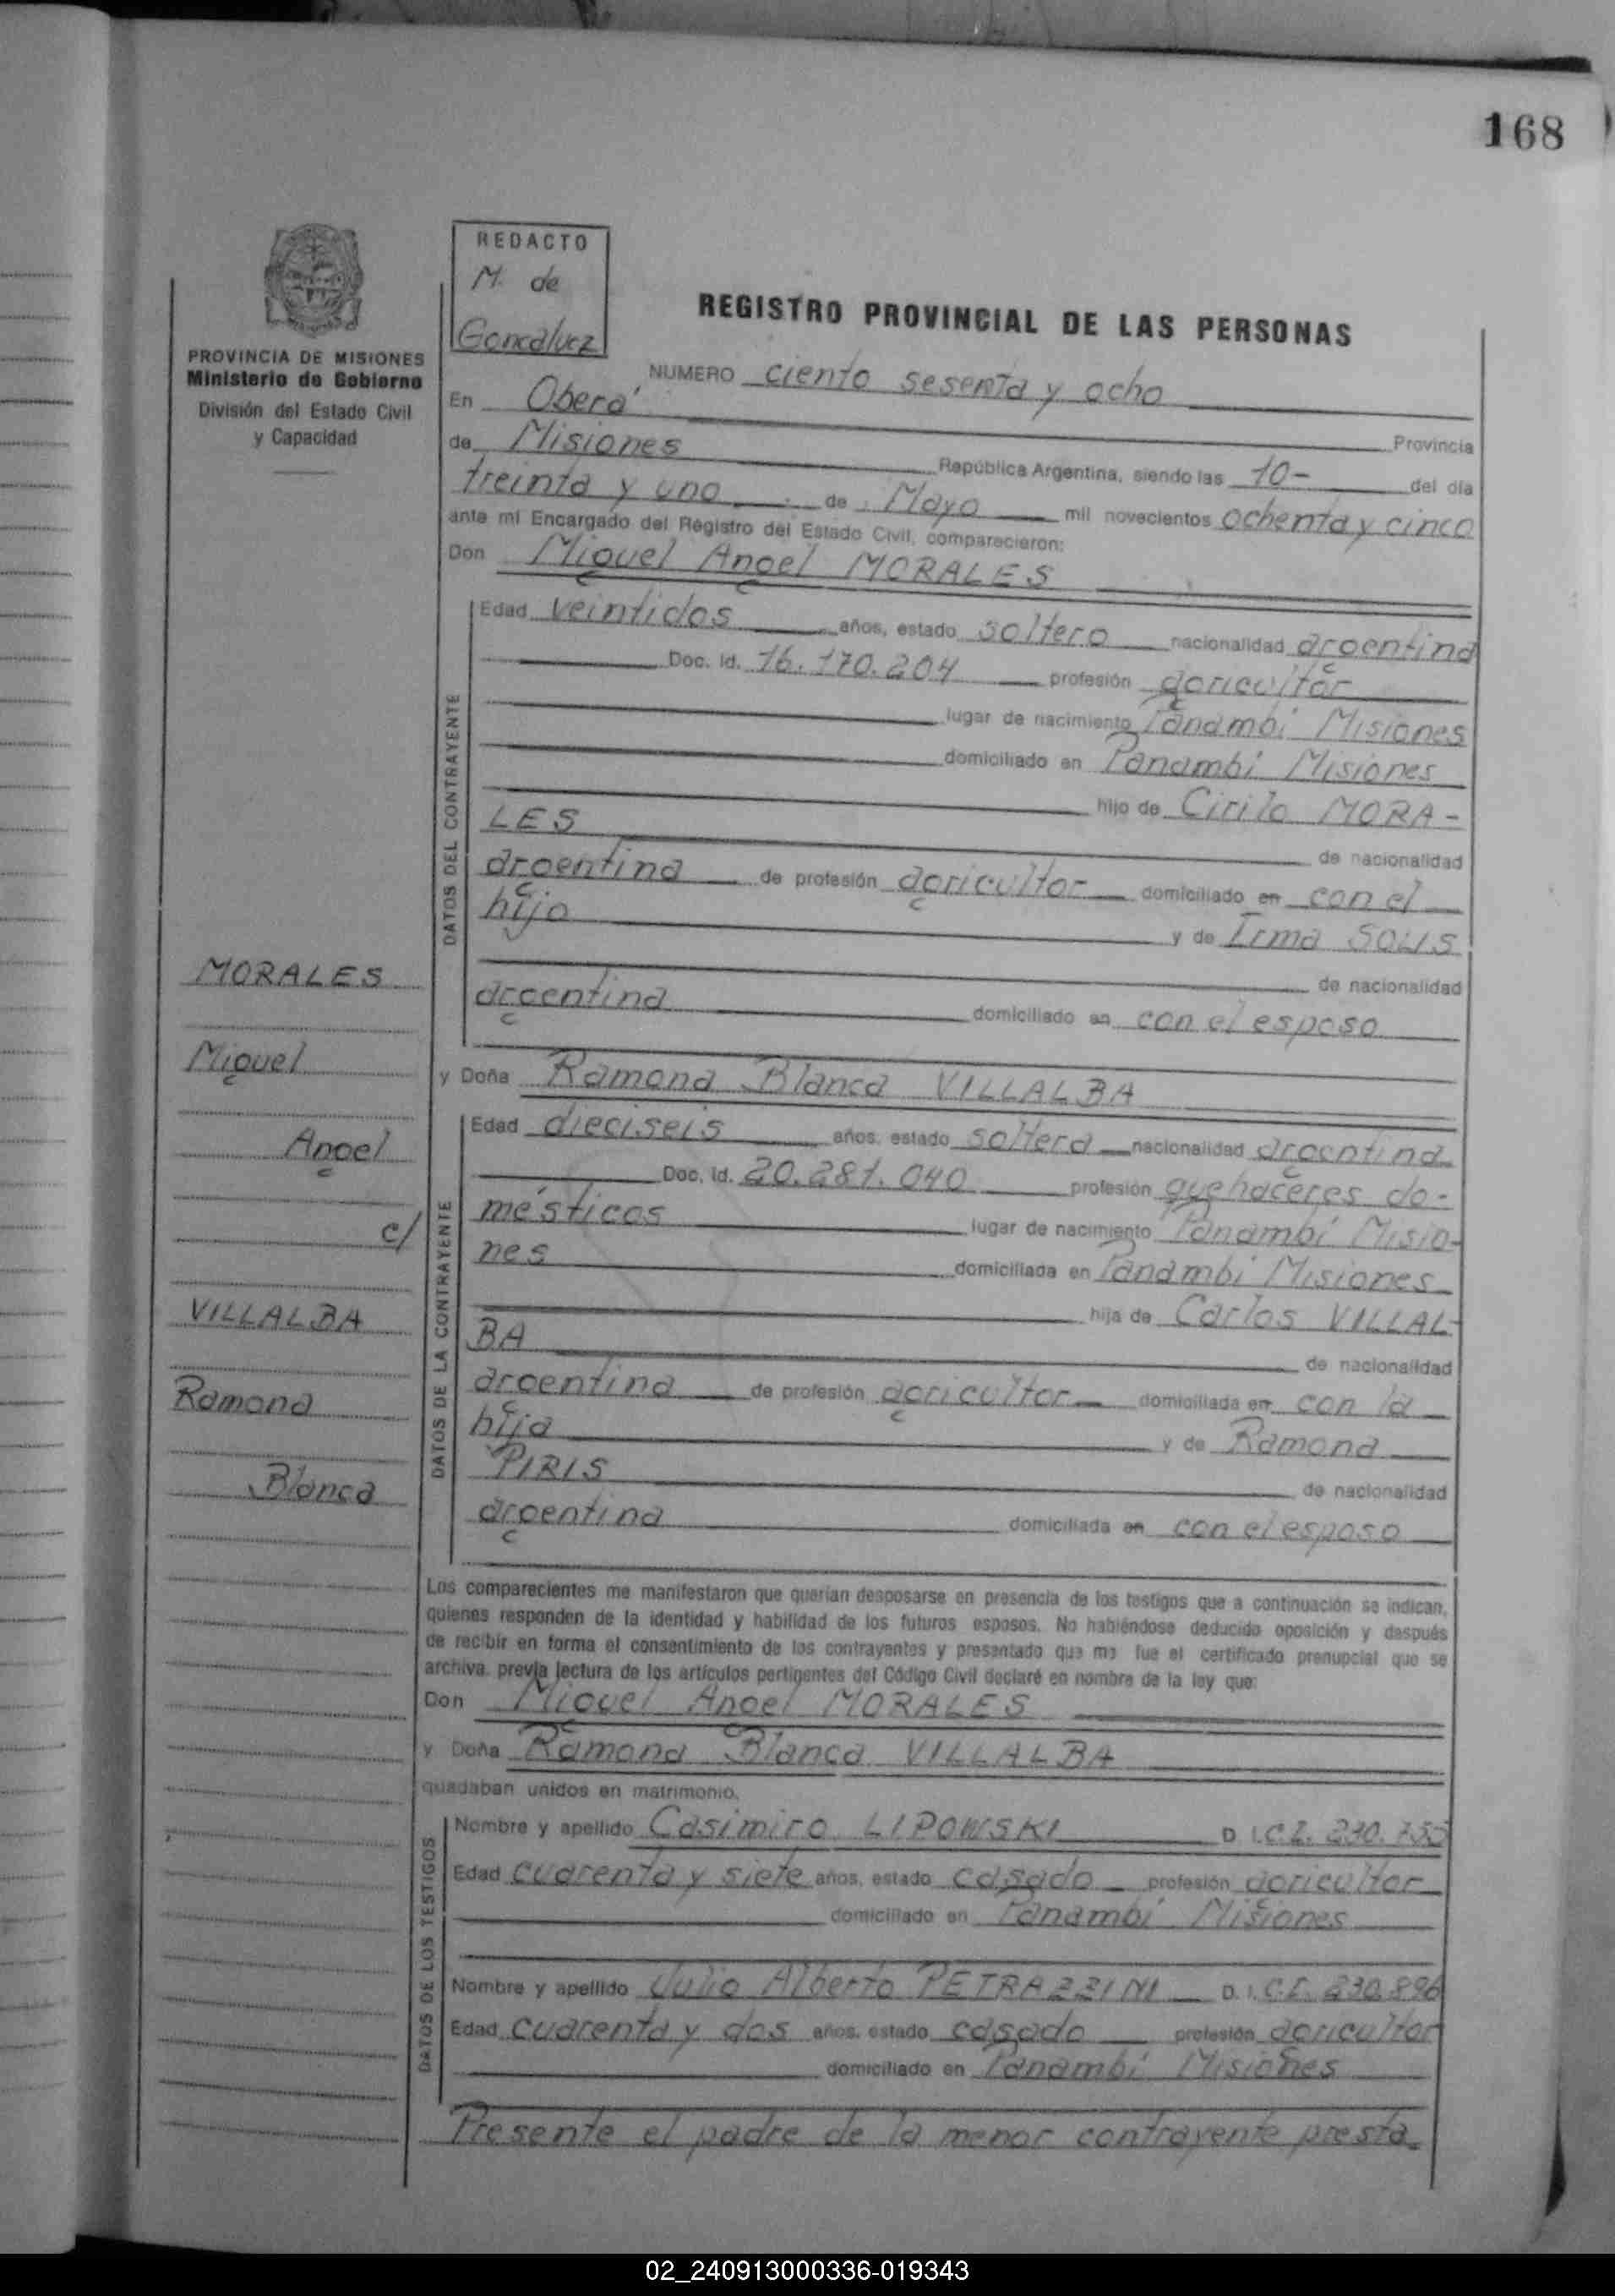 168
REDACTO
M. de
Goncalvez
PROVINCIA DE MISIONES
Ministerio de Gobierno
División del Estado Civil
y Capacidad
REGISTRO PROVINCIAL DE LAS PERSONAS
NUMERO ciento sesenta y ocho
En Oberá Provincia
de Misiones República Argentina, siendo las 10- del día
treinta y uno de Mayo mil novecientos ochenta y cinco
ante mi Encargado del Registro del Estado Civil, comparecieron:
Don Miguel Angel MORALES
DATOS DEL CONTRAYENTE
Edad veintidos años, estado soltero nacionalidad argentina
Doc. Id. 16.170.204 profesión agricultor
lugar de nacimiento Panambí Misiones
domiciliado en Panambí Misiones
hijo de Cirilo MORA-
LES de nacionalidad
argentina de profesión agricultor domiciliado en con el
hijo y de Irma SOLIS
de nacionalidad
argentina domiciliado en con el esposo
y Doña Ramona Blanca VILLALBA
DATOS DE LA CONTRAYENTE
Edad dieciseis años, estado soltera nacionalidad argentina
Doc. Id. 20.281.040 profesión quehaceres do-
mésticos lugar de nacimiento Panambí Misio-
nes domiciliada en Panambí Misiones
hija de Carlos VILLAL-
BA de nacionalidad
argentina de profesión agricultor domiciliada en con la
hija y de Ramona
PIRIS de nacionalidad
argentina domiciliada en con el esposo
MORALES
Miguel
Angel
c/
VILLALBA
Ramona
Blanca
Los comparecientes me manifestaron que querían desposarse en presencia de los testigos que a continuación se indican,
quienes responden de la identidad y habilidad de los futuros esposos. No habiéndose deducido oposición y después
de recibir en forma el consentimiento de los contrayentes y presentado que me fue el certificado prenupcial que se
archiva, previa lectura de los artículos pertinentes del Código Civil declaré en nombre de la ley que:
Don Miguel Angel MORALES
y Doña Ramona Blanca VILLALBA
quedaban unidos en matrimonio.
DATOS DE LOS TESTIGOS
Nombre y apellido Casimiro LIPOWSKI D. I. C.I. 230.755
Edad cuarenta y siete años, estado casado profesión agricultor
domiciliado en Panambí Misiones
Nombre y apellido Julio Alberto PETRAZZINI D. I. C.I. 230.896
Edad cuarenta y dos años, estado casado profesión agricultor
domiciliado en Panambí Misiones
Presente el padre de la menor contrayente presta-
02_240913000336-019343